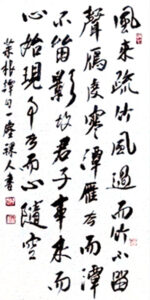 風來疏竹風過而竹不留
聲鴈度寒潭雁去而潭
不留影故君子事來而
心始現事去而心隨空
菜根譚句一人書